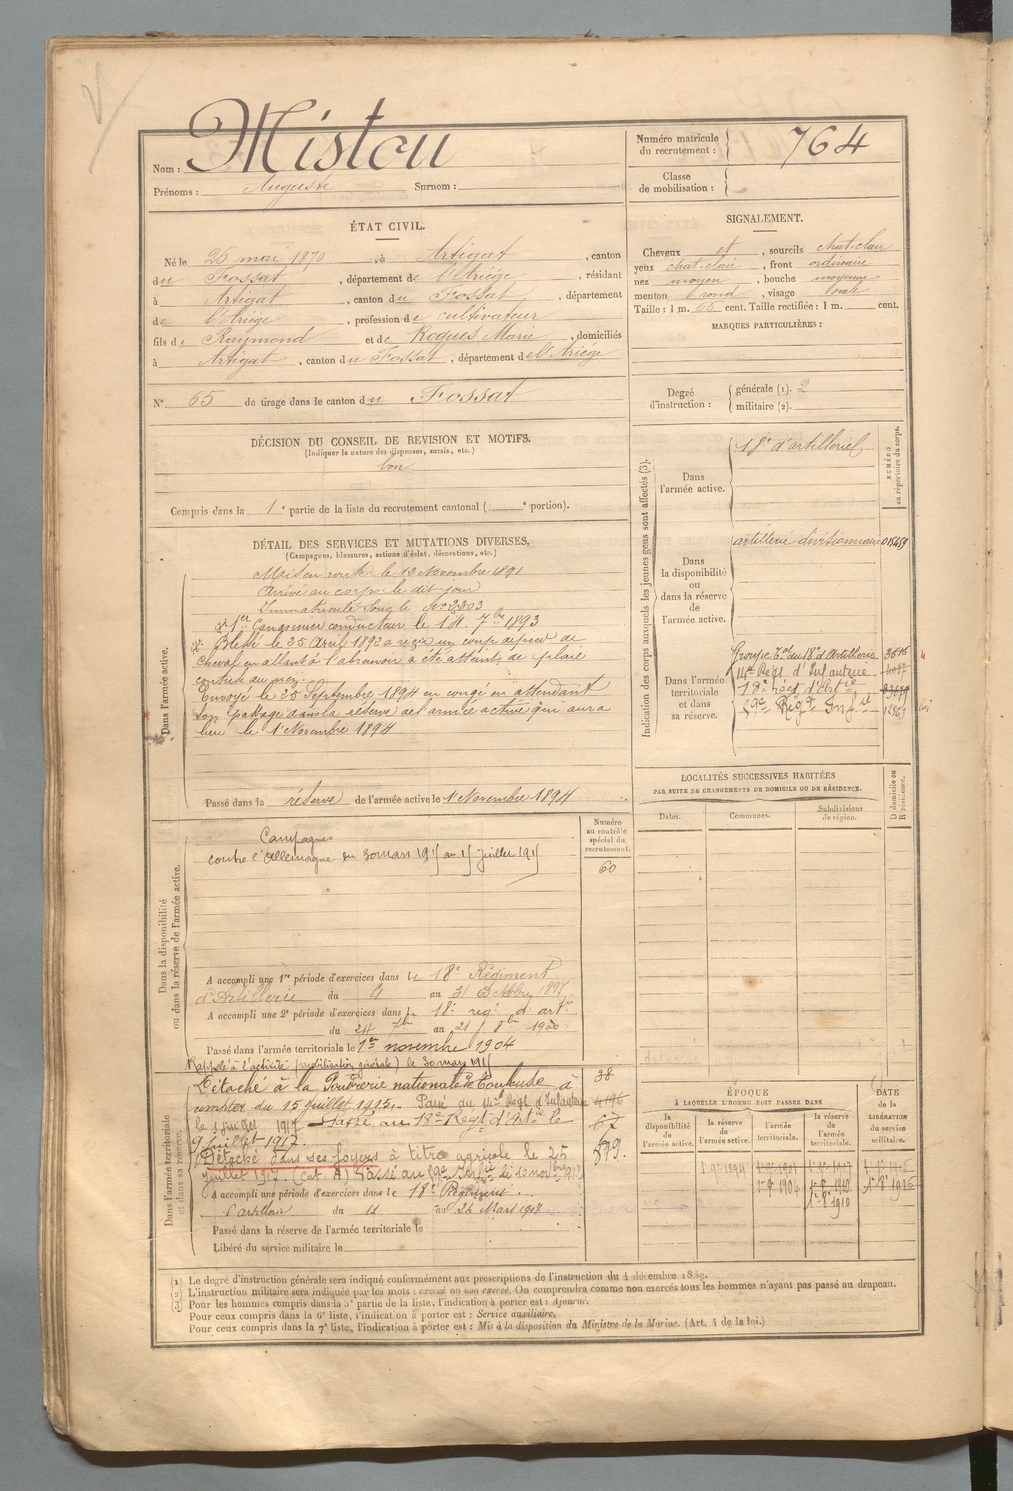 Nom : Mistou
Prénoms : Auguste Surnom :
Numéro matricule
du recrutement : 764
Classe
de mobilisation :
ÉTAT CIVIL.
Né le 26 mai 1870, à Artigat, canton
du Fossat, département de l'Ariège, résidant
à Artigat, canton du Fossat, département
de l'Ariège, profession de cultivateur
fils de Raymond et de Roques Marie, domiciliés
à Artigat, canton du Fossat, département de l'Ariége
N° 65 de tirage dans le canton du Fossat
DÉCISION DU CONSEIL DE REVISION ET MOTIFS.
(Indiquer la nature des dispenses, sursis, etc.)
bon
Compris dans la 1e partie de la liste du recrutement cantonal ( e portion).
SIGNALEMENT.
Cheveux et, sourcils chat. clair
yeux chat. clair, front ordinaire
nez moyen, bouche moyenne
menton rond, visage ovale
Taille : 1 m. 66 cent. Taille rectifiée : 1 m. cent.
MARQUES PARTICULIÈRES :
Degré
d'instruction :
générale (1). 2
militaire (2).
DÉTAIL DES SERVICES ET MUTATIONS DIVERSES.
(Campagnes, blessures, actions d'éclat, décorations, etc.)
Dans l'armée active.
Mis en route le 12 Novembre 1891
Arrivé au corps le dit jour
Immatriculé sous le N° 2303
1er Canonnier conducteur le 7bre 1893
Blessé le 25 Avril 1892 a reçu un coup de pied de
cheval en allant à l'abreuvoir a été atteint de plaie
contuse au nez.
Envoyé le 25 Septembre 1894 en congé en attendant
son passage dans la réserve de l'armée active qui aura
lieu le 1er Novembre 1894
Passé dans la réserve de l'armée active le 1er Novembre 1894
Indication des corps auxquels les jeunes gens sont affectés (3).
NUMÉRO
au répertoire du corps.
Dans
l'armée active.
18e d'artillerie
Dans
la disponibilité
ou
dans la réserve
de
l'armée active.
artillerie divisionnaire 015459
Dans l'armée
territoriale
et dans
sa réserve.
Groupe Tal du 18e d'Artillerie
14e Régt d'Infanterie
18e régt d'Artie
59e Régt Infie
LOCALITÉS SUCCESSIVES HABITÉES
PAR SUITE DE CHANGEMENTS DE DOMICILE OU DE RÉSIDENCE.
Dates. Communes. Subdivisions
de région.
D domicile ou
R résidence.
Dans la disponibilité
ou dans la réserve de l'armée active.
Numéro
au contrôle
spécial du
recrutement.
60
Campagnes
contre l'Allemagne du 30 mars 1915 au 15 Juillet 1915
A accompli une 1re période d'exercices dans le 18e Régiment
d'Artillerie du 4 au 31 Octobre 1897
A accompli une 2e période d'exercices dans le 18e régt d'artie
du 24 7bre au 21 8bre 1900
Passé dans l'armée territoriale le 1er novembre 1904
Rappelé à l'activité (mobilisation générale) le 30 mars 1915
Dans l'armée territoriale
et dans sa réserve.
Détaché à la Poudrerie nationale de Toulouse à
compter du 15 juillet 1915. Passé au 14e Régt d'Infanterie
le 1 juillet 1917 Passé au 18e Régt d'Artie le
9 juillet 1917.
Détaché dans ses foyers à titre agricole le 25
juillet 1917. (cat. A) Passé au 59e Infie le 10 novbre 1917
38
67
A accompli une période d'exercices dans le 18e Régiment
d'artillerie du 11 au 24 Mars 1907
Passé dans la réserve de l'armée territoriale le
Libéré du service militaire le
ÉPOQUE
À LAQUELLE L'HOMME DOIT PASSER DANS
la
disponibilité
de
l'armée active.
la réserve
de
l'armée active.
l'armée
territoriale.
la réserve
de
l'armée
territoriale.
DATE
de la
LIBÉRATION
du service
militaire.
(1) Le degré d'instruction générale sera indiqué conformément aux prescriptions de l'instruction du 4 décembre 1889.
(2) L'instruction militaire sera indiquée par les mots : exercé ou non exercé. On comprendra comme non exercés tous les hommes n'ayant pas passé au drapeau.
(3) Pour les hommes compris dans la 5e partie de la liste, l'indication à porter est : Ajourné.
Pour ceux compris dans la 6e liste, l'indication à porter est : Service auxiliaire.
Pour ceux compris dans la 7e liste, l'indication à porter est : Mis à la disposition du Ministre de la Marine. (Art. 4 de la loi.)